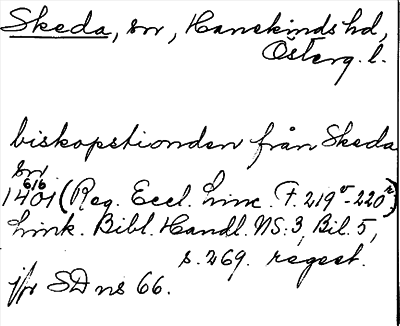 Skeda, sn, Hanekinds hd,
Österg. l.
biskopstionden från Skeda
sn
1401 6/6 (Reg. Eccl. Linc. F. 219v-220r)
Link. Bibl. Handl. NS:3, Bil. 5,
s. 269. regest.
jfr SD ns 66.